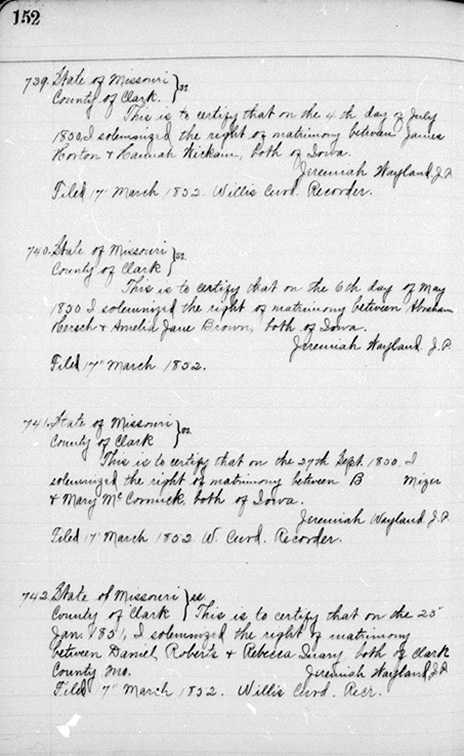 152
739. State of Missouri } ss.
County of Clark.
This is to certify that on the 4th day of July
1850, I solemnized the right of matrimony between James
Horton & Hannah Wickam, both of Iowa.
Jeremiah Wayland, J.P.
Filed 17" March 1852. Willis Curd. Recorder.
740. State of Missouri } ss.
County of Clark
This is to certify that on the 6th day of May
1850 I solemnized the right of matrimony between Abraham
Hersch & Amelia Jane Brown, both of Iowa.
Jeremiah Wayland. J.P.
Filed 17" March 1852.
741. State of Missouri } ss.
County of Clark
This is to certify that on the 27th Sept. 1850, I
solemnized the right of matrimony between B Mizer
& Mary McCormick, both of Iowa.
Jeremiah Wayland J.P.
Filed 17" March 1852 W. Curd. Recorder.
742. State of Missouri } ss.
County of Clark } This is to certify that on the 25"
Jan. 1851, I solemnized the right of matrimony
between Daniel Roberts & Rebecca both of Clark
County Mo. Jeremiah Wayland, J.P.
Filed 7" March 1852. Willis Curd. Recr.